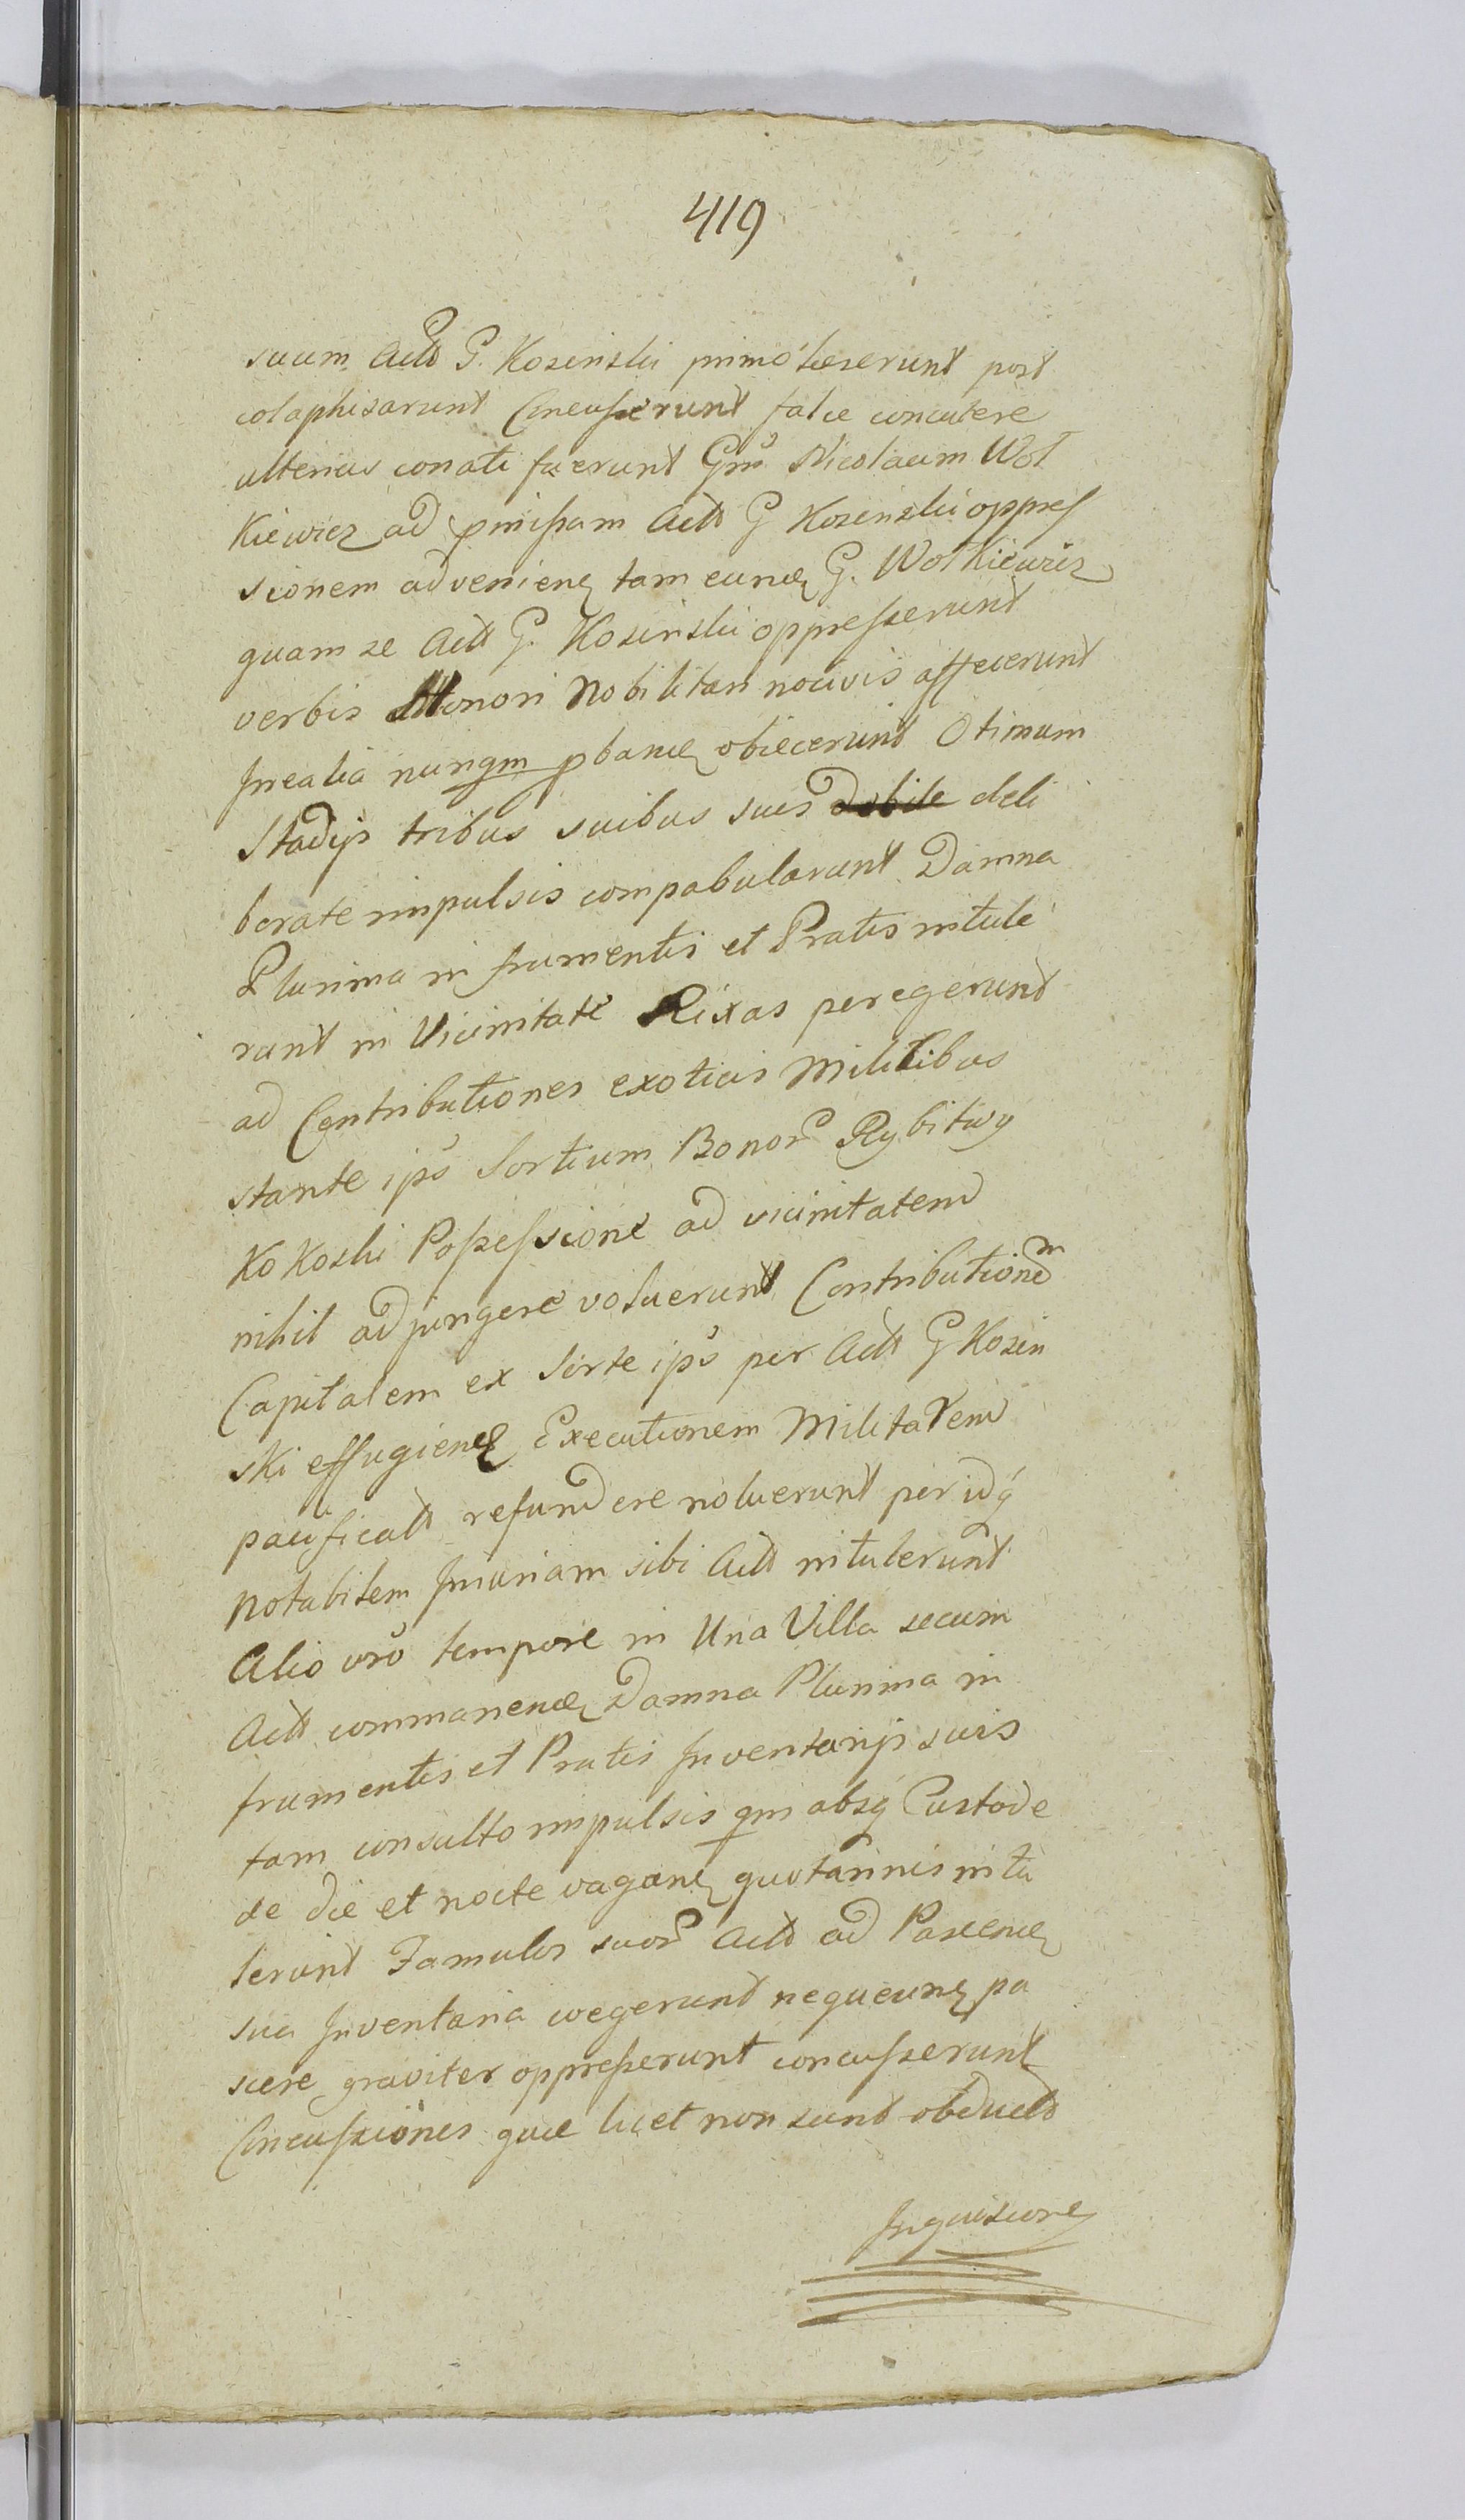 419
suum Actt G. Kosinski primo læserunt post
colaphisarunt Concusserunt false concutere
ulterius conati fuerunt Grm̃ Nicolaum Woł
Kiewicz ad p̱missam Actt G Kosinski oppres
sionem advenienę tam eunđę G. Wołkiewicz
quam se Actt G. Kosinski oppresserunt
verbis Honori Nobilitari nocivis affecerunt
Irrealia nunqm p̱banđę obiecerunt Otimum
Stadijs tribus suibus suis debite deli
berate impulsis compabularunt Damna
Plurima in frumentis et Pratis intule
runt in Vicinitate Rixas peregerunt
ad Contributiones exoticis Militibus
stante ips̃ Sortium Bonor̃ Rybitwy
KoKoski Possessione ad vicinitatem
nihil adjungere voluerunt Contributionem
Capitalem ex Sorte ips̃ per Actt G Kosin
ski effugienđę Executionem Militarem
pacificatt refundere noluerunt per idq́
Notabilem Iniuriam sibi Actt intulerunt
Alio vrõ tempore in Una Villa secum
Actt commanenđę Damna Plurima in
frumentis et Pratis Inventarijs suis
tam consulto impulsis qm absq́ Custode
de die et nocte vaganę quotannis intu
lerunt Famulos suor̃ Actt ad Pascenđę
sua Inventaria coegerunt nequeunę pa
scere graviter oppresserunt concusserunt
Concussiones quæ licet non sunt obductt
Inquisione